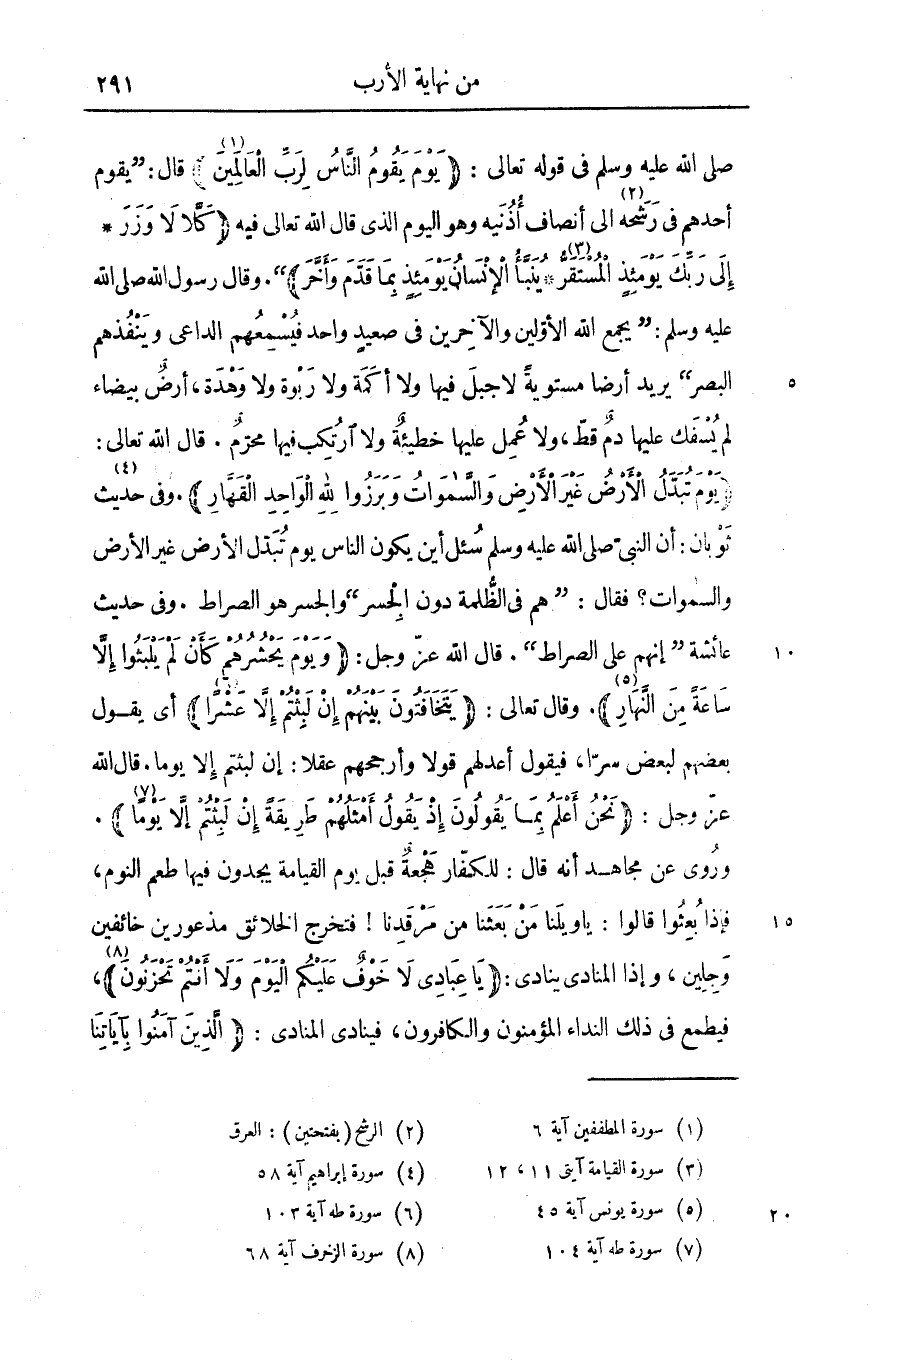 من نهاية الأرب ٢٩١
صلى الله عليه وسلم فى قوله تعالى : ﴿ يَوْمَ يَقُومُ النَّاسُ لِرَبِّ الْعَالَمِينَ ﴾(١) قال: ”يقوم
أحدهم فى رَشَحه(٢) الى أنصاف أُذُنَيه وهو اليوم الذى قال الله تعالى فيه ﴿ كَلَّا لَا وَزَرَ *
إِلَى رَبِّكَ يَوْمَئِذٍ الْمُسْتَقَرُّ(٣) * يُنَبَّأُ الْإِنْسَانُ يَوْمَئِذٍ بِمَا قَدَّمَ وَأَخَّرَ ﴾“. وقال رسول الله صلى الله
عليه وسلم : ”يجمع الله الأوّلين والآخِرين فى صعيدٍ واحد فيُسْمِعُهم الداعى ويَنْفُذهم
البصر“ يريد أرضا مستويةً لاجبلَ فيها ولا أَكَمَة ولا رَبْوة ولا وَهْدَة ، أرضٌ بيضاء ٥
لم يُسْفَك عليها دمٌ قطّ، ولا عُمِل عليها خطيئةٌ ولا ٱرتُكِب فيها محرّمٌ . قال الله تعالى :
﴿ يَوْمَ تُبَدَّلُ الْأَرْضُ غَيْرَ الْأَرْضِ وَالسَّمٰوَاتُ وَبَرَزُوا لِلهِ الْوَاحِدِ الْقَهَّارِ ﴾(٤). وفى حديث
ثَوْبان : أن النبىّ صلى الله عليه وسلم سُئل أين يكون الناس يوم تُبَدّل الأرض غير الأرض
والسمٰوات؟ فقال : ” هم فى الظُّلمة دون الِجْسر“ والجسر هو الصراط . وفى حديث
عائشة ” إنهم على الصراط“ . قال الله عزّ وجل : ﴿ وَيَوْمَ يَحْشُرُهُمْ كَأَنْ لَمْ يَلْبَثُوا إِلَّا ١٠
سَاعَةً مِنَ النَّهَارِ ﴾(٥). وقال تعالى : ﴿ يَتَخَافَتُونَ بَيْنَهُمْ إِنْ لَبِثْتُمْ إِلَّا عَشْرًا ﴾(٦) أى يقول
بعضهم لبعض سرّا، فيقول أعدلهم قولا وأرجحهم عقلا : إن لبثتم إلا يوما . قال الله
عزّ وجل : ﴿ نَحْنُ أَعْلَمُ بِمَا يَقُولُونَ إِذْ يَقُولُ أَمْثَلُهُمْ طَرِيقَةً إِنْ لَبِثْتُمْ إِلَّا يَوْمًا ﴾(٧) .
ورُوى عن مجاهد أنه قال : للكفّار هَجْعةٌ قبل يوم القيامة يجدون فيها طعم النوم ،
فإذا بُعِثُوا قالوا : ياويلَنا مَنْ بَعَثَنا من مَرْقَدِنا ! فتخرج الخلائق مذعورين خائفين ١٥
وَجِلِين ، وإذا المنادى ينادى : ﴿ يَا عِبَادِى لَا خَوْفٌ عَلَيْكُمُ الْيَوْمَ وَلَا أَنْتُمْ تَحْزَنُونَ ﴾(٨)،
فيطمع فى ذلك النداء المؤمنون والكافرون ، فينادى المنادى : ﴿ الَّذِينَ آمَنُوا بِآيَاتِنَا
(١) سورة المطففين آية ٦ (٢) الرشح (بفتحتين) : العرق
(٣) سورة القيامة آيتى ١١ ، ١٢ (٤) سورة إبراهيم آية ٥٨
(٥) سورة يونس آية ٤٥ (٦) سورة طه آية ١٠٣ ٢٠
(٧) سورة طه آية ١٠٤ (٨) سورة الزخرف آية ٦٨